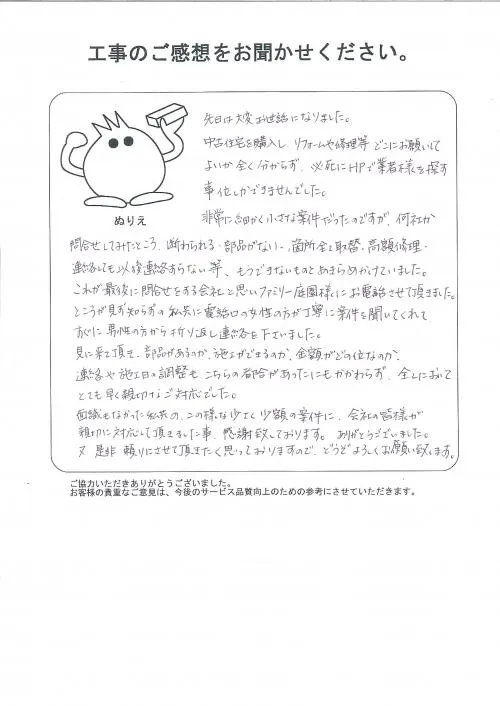 工事のご感想をお聞かせください。
先日は大変お世話になりました。
中古住宅を購入し、リフォームや修理等 どこにお願いして
よいか全く分からず、必死にHPで業者様を探す
事位しかできませんでした。
非常に細かく小さな案件だったのですが、何社か
ぬりえ
問合せしてみたところ、断わられる・部品がない・箇所全て取替・高額修理・
連絡しても以後連絡すらない等、もうできないものとあきらめかけていました。
これが最後に問合せをする会社と思いファミリー庭園様にお電話させて頂きました。
ところが見ず知らずの私共に電話口の女性の方が丁寧に案件を聞いてくれて
すぐに男性の方から折り返し連絡を下さいました。
見に来て頂き、部品があるのか、施工ができるのか、金額がどの位なのか、
連絡や施工日の調整も こちらの都合があったにもかかわらず、全てにおいて
とても早く親切なご対応でした。
面識もなかった私共の、この様な少なく少額の案件に、会社の皆様が
親切に対応して頂きました事、感謝致しております。 ありがとうございました。
又 是非 頼りにさせて頂きたく思っておりますので、どうぞよろしくお願い致します。
ご協力いただきありがとうございました。
お客様の貴重なご意見は、今後のサービス品質向上のための参考にさせていただきます。